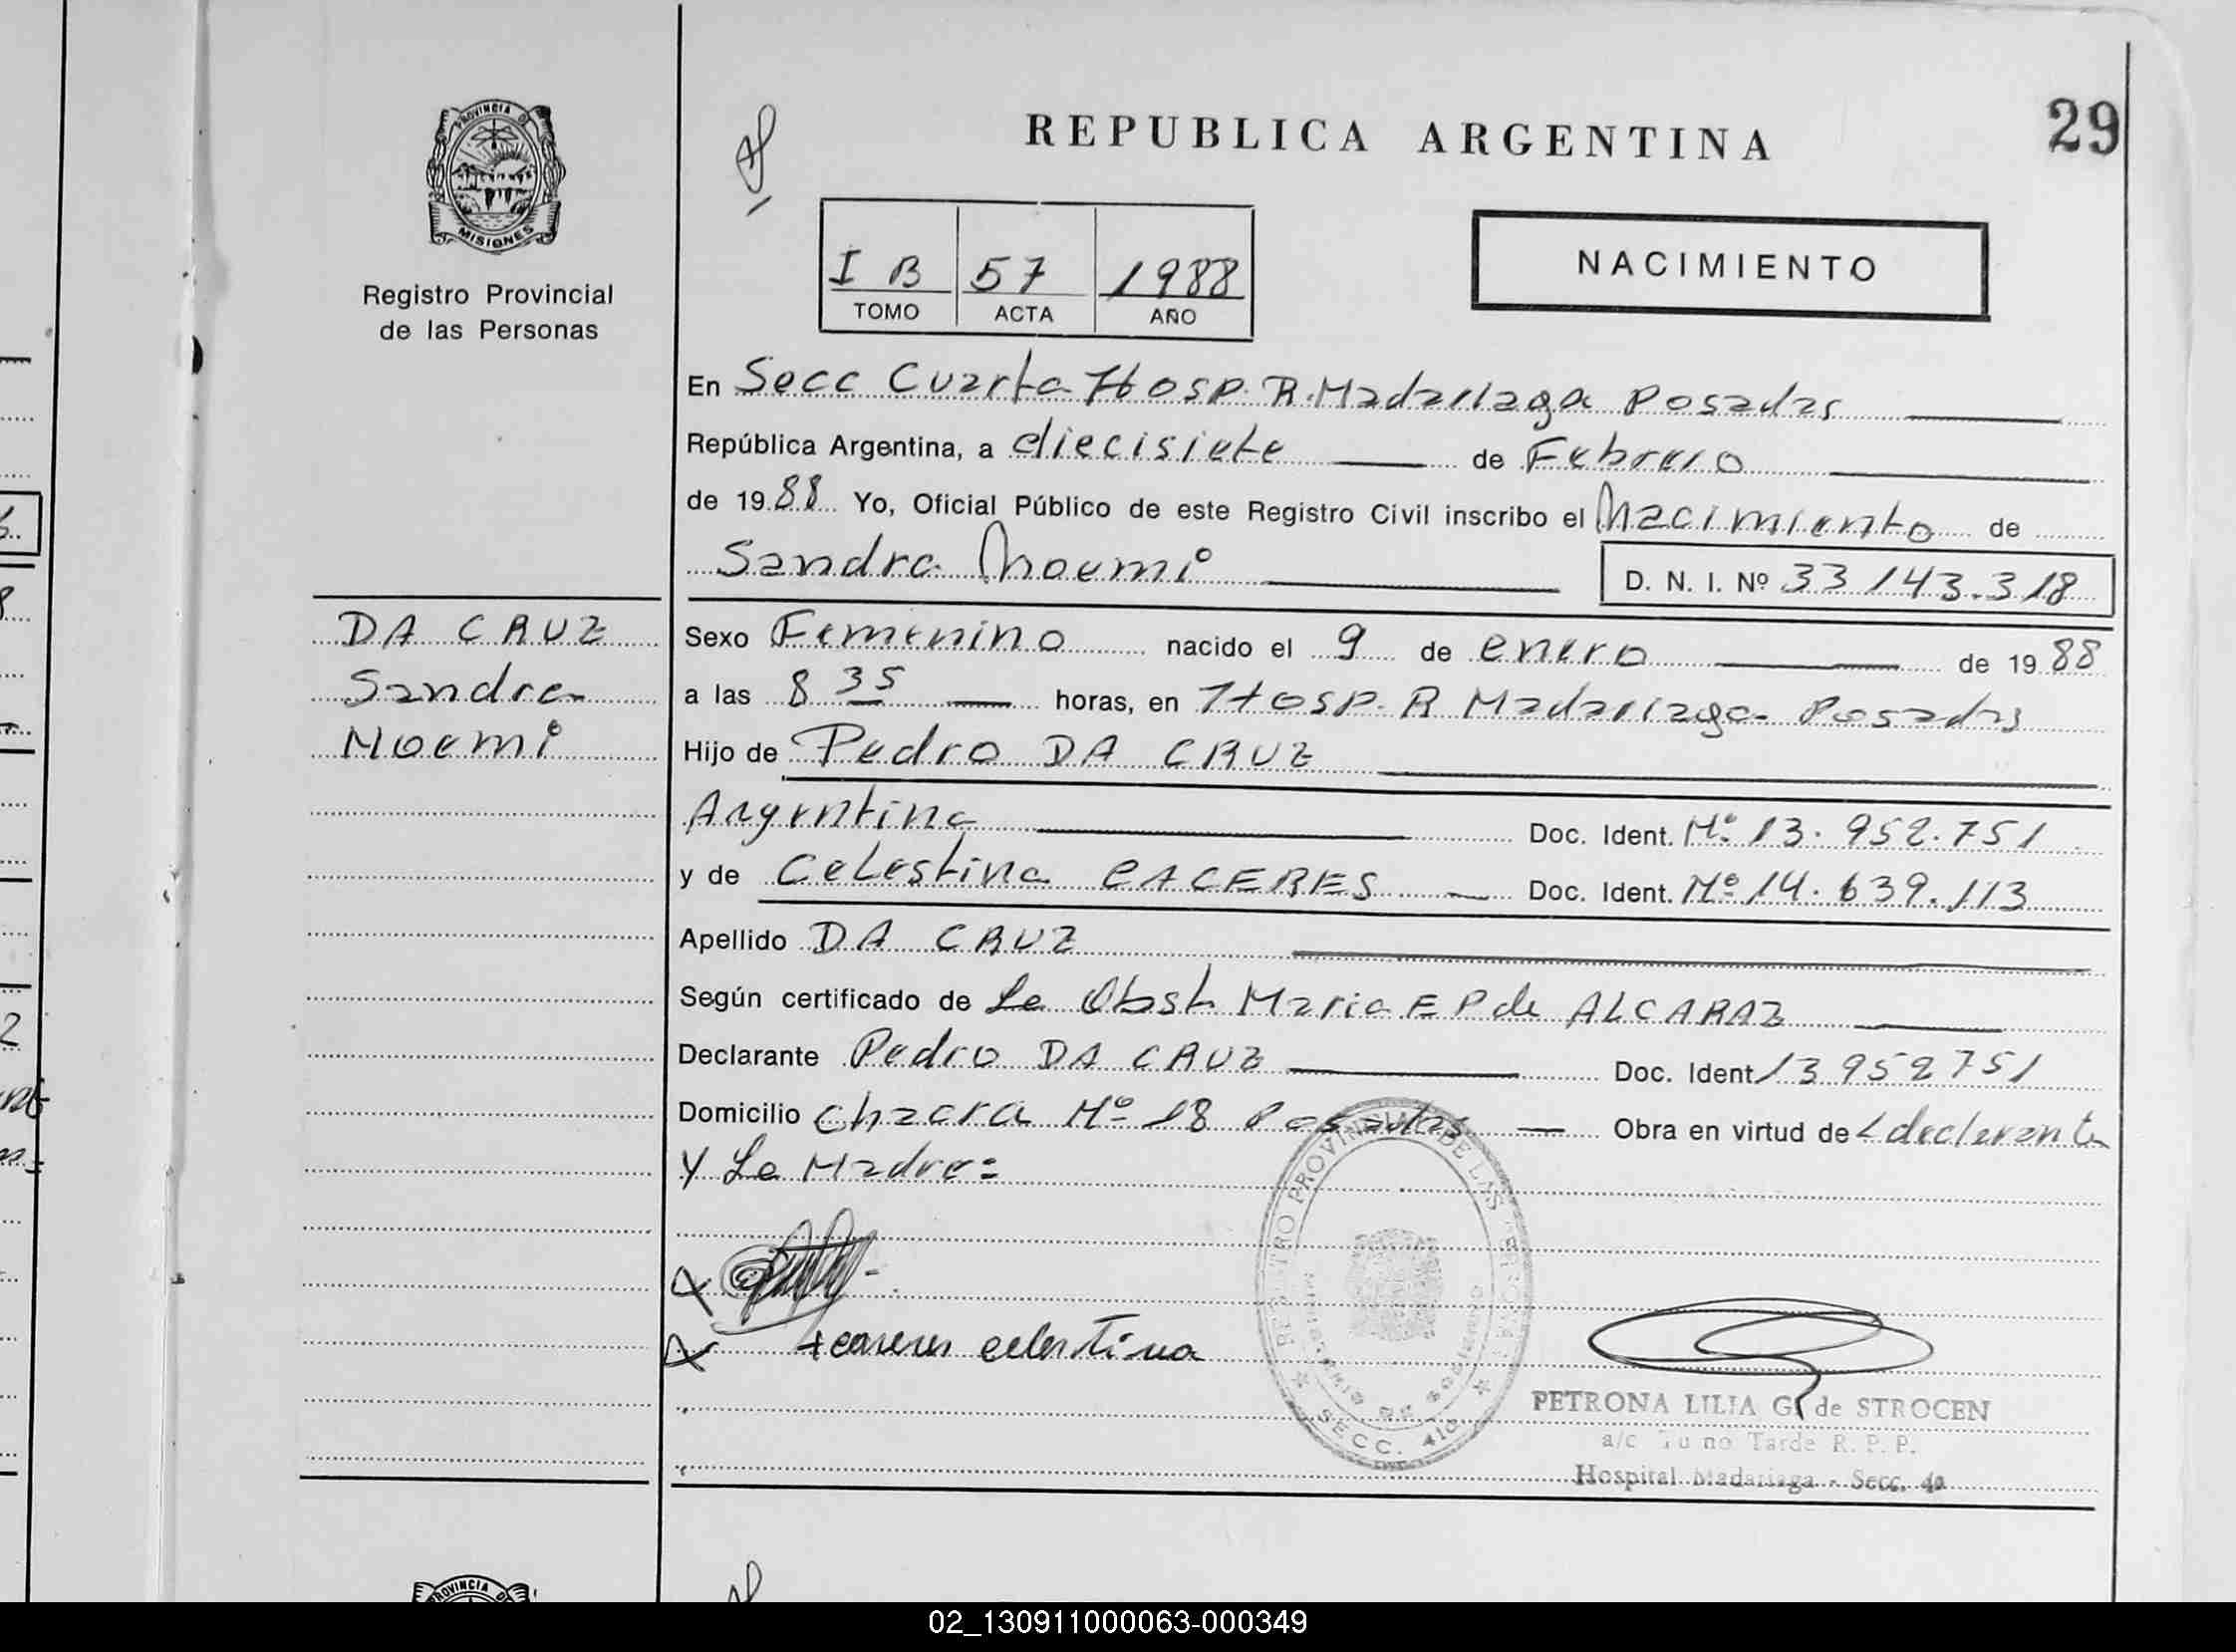 PROVINCIA D
MISIONES
Registro Provincial
de las Personas
REPUBLICA ARGENTINA
29
I B 57 1988
TOMO ACTA AÑO
NACIMIENTO
En Secc Cuarta Hosp. R. Madariaga Posadas
República Argentina, a diecisiete de Febrero
de 1988 Yo, Oficial Público de este Registro Civil inscribo el Nacimiento de
Sandra Noemi
D. N. I. Nº 33 143.318
DA CRUZ
Sandra
Noemi
Sexo Femenino nacido el 9 de enero de 1988
a las 8 35 horas, en Hosp. R Madariaga Posadas
Hijo de Pedro DA CRUZ
Argentina Doc. Ident. Nº 13.952.751
y de Celestina CACERES Doc. Ident. Nº 14.639.113
Apellido DA CRUZ
Según certificado de La Obst Maria E P de ALCARAZ
Declarante Pedro DA CRUZ Doc. Ident 13952751
Domicilio chacra Nº 18 Posadas Obra en virtud de declarante
y La Madre=
caseres celestina
REGISTRO PROVINCIAL DE LAS PERSONAS
SECC. 4ta
PETRONA LILIA G. de STROCEN
a/c Turno Tarde R. P. P.
Hospital Madariaga - Secc. 4a
PROVINCIA D
02_130911000063-000349